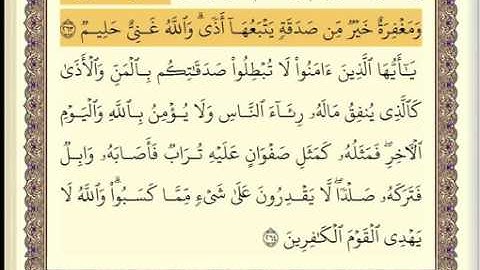 وَمَغْفِرَةٌ خَيْرٌ مِّن صَدَقَةٍ يَتْبَعُهَآ أَذًى ۗ وَٱللَّهُ غَنِىٌّ حَلِيمٌ ﴿٢٦٣﴾
يَـٰٓأَيُّهَا ٱلَّذِينَ ءَامَنُوا۟ لَا تُبْطِلُوا۟ صَدَقَـٰتِكُم بِٱلْمَنِّ وَٱلْأَذَىٰ
كَٱلَّذِى يُنفِقُ مَالَهُۥ رِئَآءَ ٱلنَّاسِ وَلَا يُؤْمِنُ بِٱللَّهِ وَٱلْيَوْمِ
ٱلْـَٔاخِرِ ۖ فَمَثَلُهُۥ كَمَثَلِ صَفْوَانٍ عَلَيْهِ تُرَابٌ فَأَصَابَهُۥ وَابِلٌ
فَتَرَكَهُۥ صَلْدًا ۖ لَّا يَقْدِرُونَ عَلَىٰ شَىْءٍ مِّمَّا كَسَبُوا۟ ۗ وَٱللَّهُ لَا
يَهْدِى ٱلْقَوْمَ ٱلْكَـٰفِرِينَ ﴿٢٦٤﴾